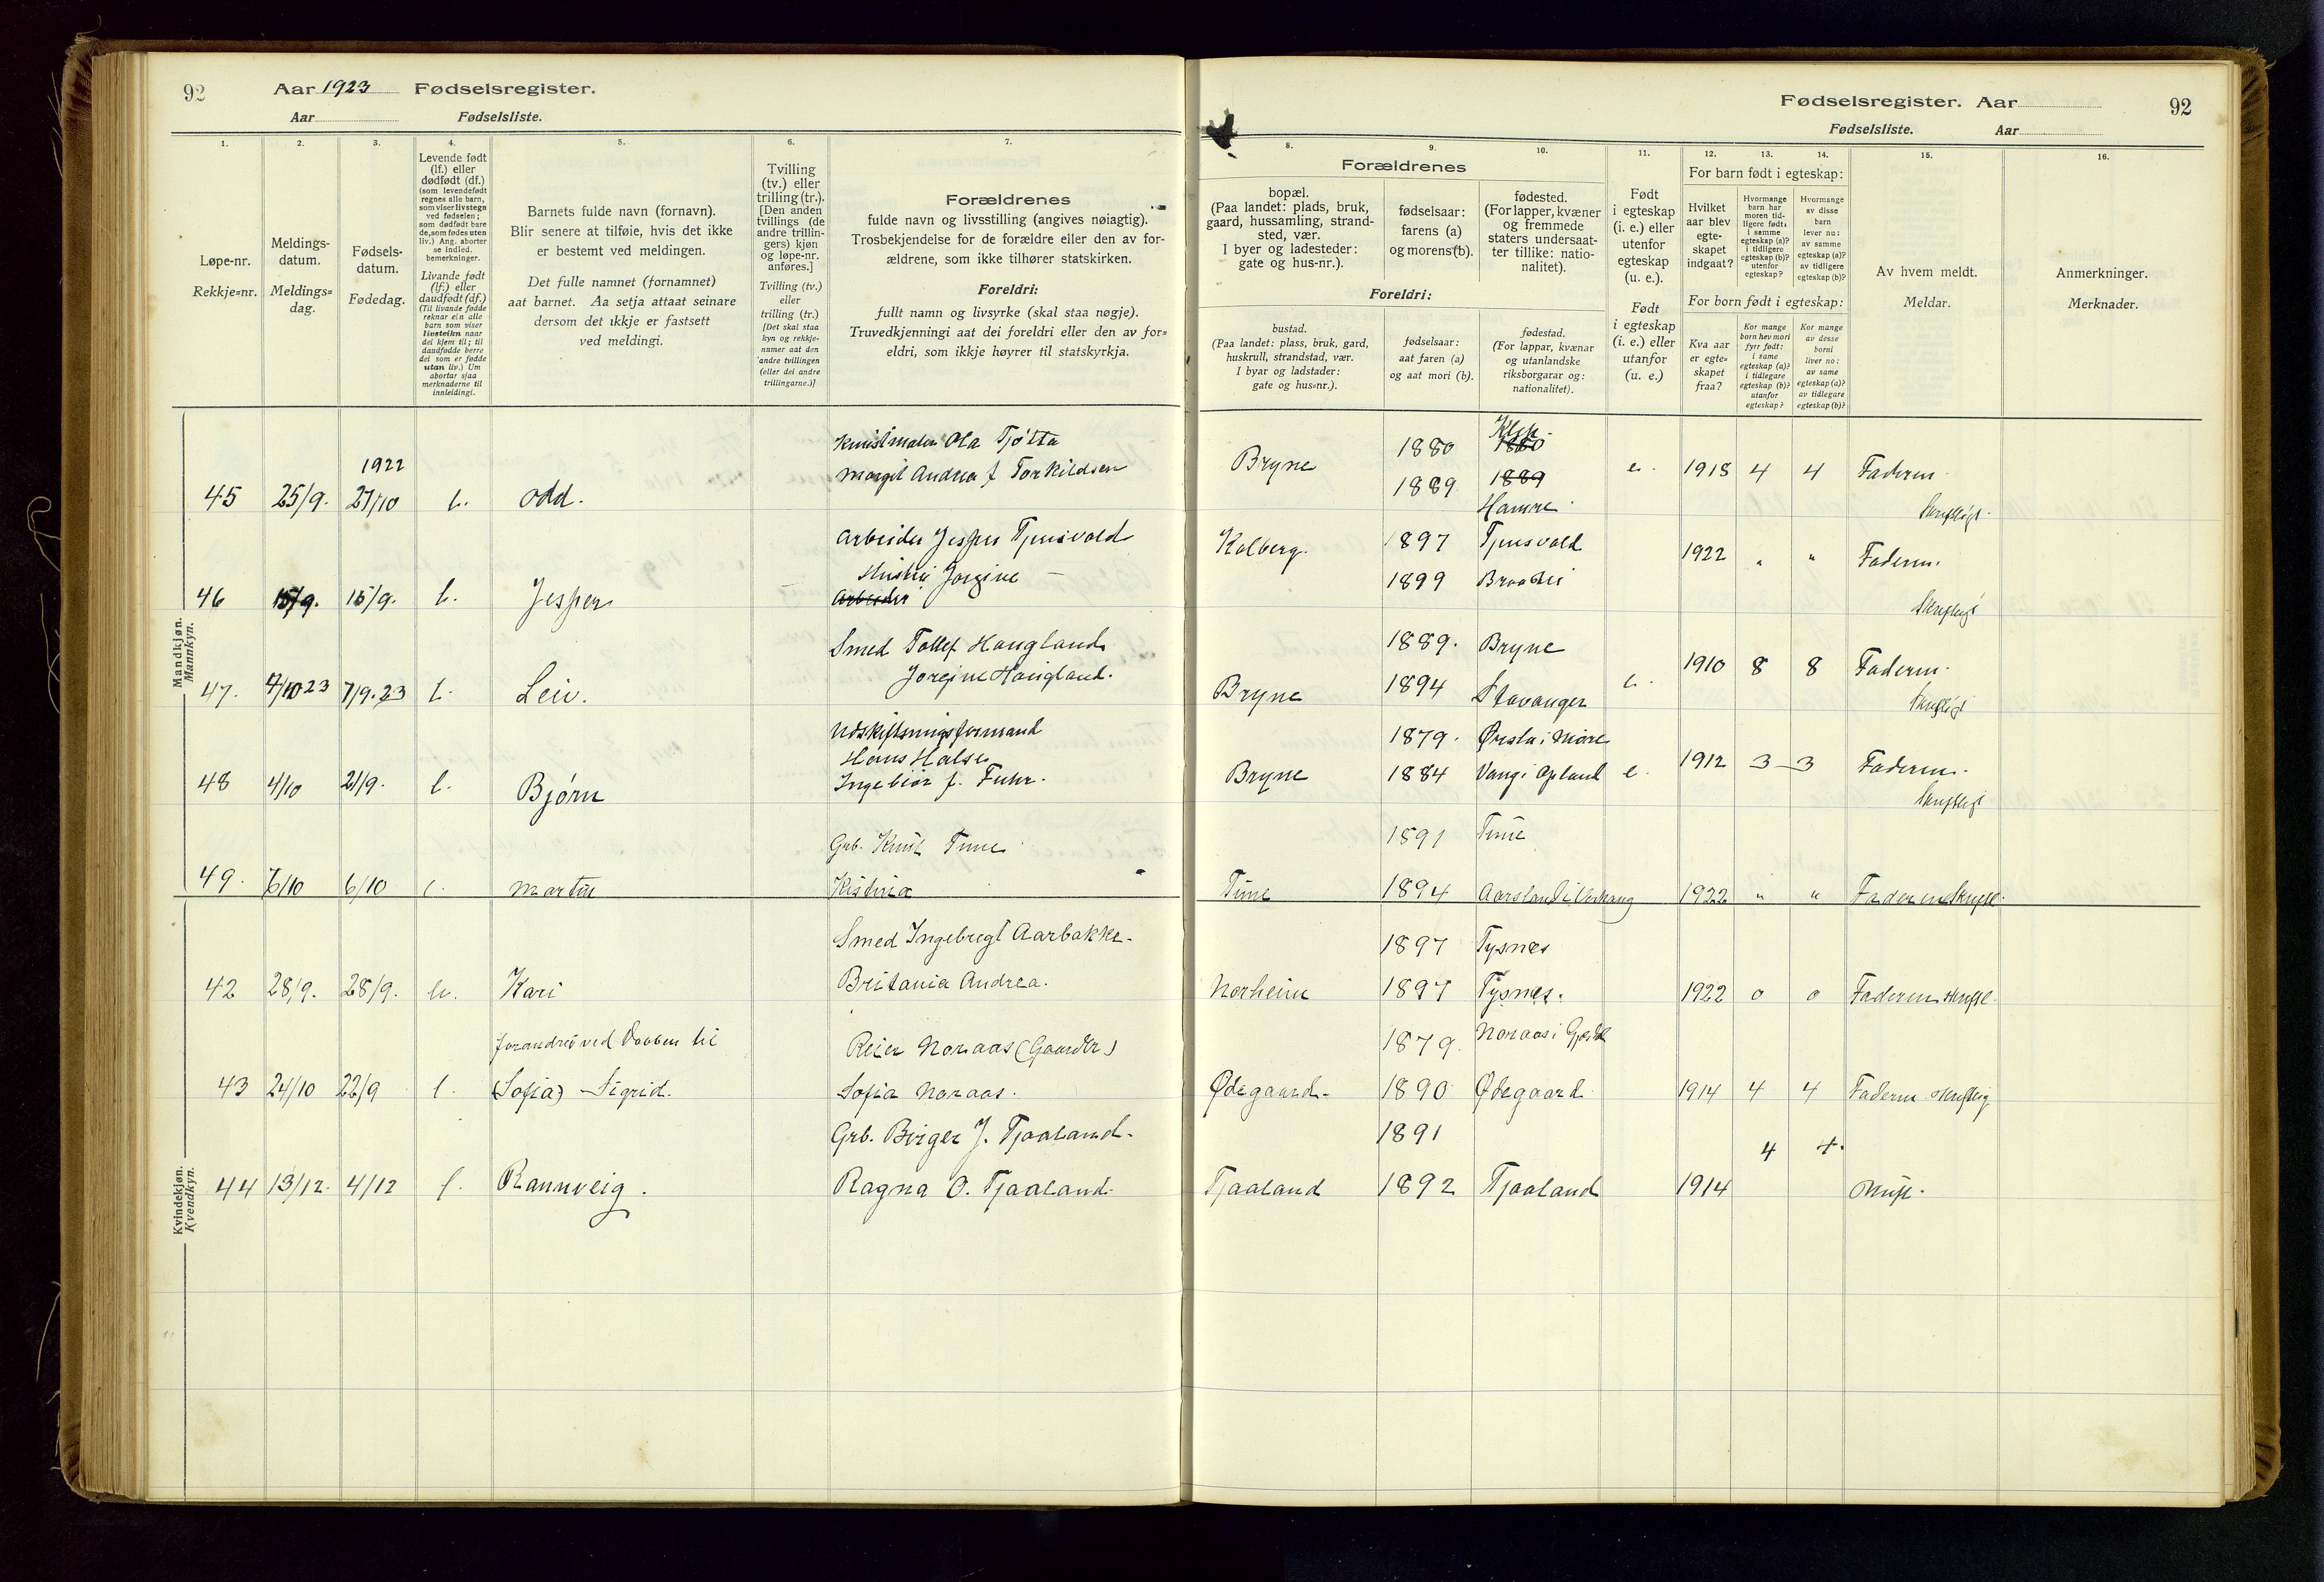 92 Aar 1923 Fødselsregister.
Aar Fødselsliste.
Fødselsregister. Aar 92
Fødselsliste. Aar
1.
Løpe-nr.
Rekkje=nr.
2.
Meldings-
datum.
Meldings=
dag.
3.
Fødsels-
datum.
Fødedag.
4.
Levende født
(lf.) eller
dødfødt (df.)
(som levendefødt
regnes alle barn,
som viser livstegn
ved fødselen;
som dødfødt bare
de, som fødes uten
liv.) Ang. aborter
se indled.
bemerkninger.
Livande født
(lf.) eller
daudfødt (df.)
(Til livande fødde
reknar ein alle
barn som viser
livsteikn naar
dei kjem til; til
daudfødde berre
dei som er fødde
utan liv.) Um
abortar sjaa
merknaderne til
innleidingi.
5.
Barnets fulde navn (fornavn).
Blir senere at tilføie, hvis det ikke
er bestemt ved meldingen.
Det fulle namnet (fornamnet)
aat barnet. Aa setja attaat seinare
dersom det ikkje er fastsett
ved meldingi.
6.
Tvilling
(tv.) eller
trilling (tr.).
[Den anden
tvillings (de
andre trillin-
gers) kjøn
og løpe-nr.
anføres.]
Tvilling (tv.)
eller
trilling (tr.)
[Det skal staa
kyn og rekkje-
numer aat den
andre tvillingen
(eller dei andre
trillingarne.)]
7.
Forældrenes
fulde navn og livsstilling (angives nøiagtig).
Trosbekjendelse for de forældre eller den av for-
ældrene, som ikke tilhører statskirken.
Foreldri:
fullt namn og livsyrke (skal staa nøgje).
Truvedkjenningi aat dei foreldri eller den av for=
eldri, som ikkje høyrer til statskyrkja.
Forældrenes
8.
bopæl.
(Paa landet: plads, bruk,
gaard, hussamling, strand-
sted, vær.
I byer og ladesteder:
gate og hus-nr.).
Foreldri:
bustad.
(Paa landet: plass, bruk, gard,
huskrull, strandstad, vær.
I byar og ladstader:
gate og hus=nr.).
9.
fødselsaar:
farens (a)
og morens (b).
fødselsaar:
aat faren (a)
og aat mori (b).
10.
fødested.
(For lapper, kvæner
og fremmede
staters undersaat-
ter tillike: natio-
nalitet).
fødestad.
(For lappar, kvænar
og utanlandske
riksborgarar og:
nationalitet).
11.
Født
i egteskap
(i. e.) eller
utenfor
egteskap
(u. e.).
Født
i egteskap
(i. e.) eller
utanfor
(u. e.)
For barn født i egteskap:
12.
Hvilket
aar blev
egte-
skapet
indgaat?
For born født i egteskap:
Kva aar
er egte=
skapet
fraa?
13.
Hvormange
barn har
moren tid-
ligere født:
i samme
egteskap (a)?
i tidligere
egteskap (b)?
utenfor
egteskap?
Kor mange
born hev mori
fyrr født:
i same
egteskap (a)?
i tidlegare
egteskap (b)?
utanfor
egteskap?
14.
Hvormange
av disse
barn
lever nu:
av samme
egteskap (a)?
av tidligere
egteskap (b)?
Kor mange
av desse
borni
liver no:
av same
egteskap (a)?
av tidlegare
egteskap (b)?
15.
Av hvem meldt.
Meldar.
16.
Anmerkninger.
Merknader.
Mandkjøn.
Mannkyn.
Kunstmaler Ola Tjøtta 1880 Klep 1880
1922 Margit Andrea f Torkildsen Bryne 1889 1889 e. 1918 4 4 Faderen
45 25/9. 27/10 l. Odd. Hamre Skriftligt.
Arbeider Jesper Tjensvold Kalberg. 1897 Tjensvold
Hustru Jorgine 1899 1922 " " Faderen.
46 15/9. 15/9. l. Jesper Arbeider Skriftligt
Smed Tollef Haugland 1889. Bryne
47. 4/10 23 7/9. 23 l. Leiv. Jorgine Haugland. Bryne 1894 Stavanger e. 1910 8 8 Faderen.
Skriftligt
Udskiftningsformand 1879. Ørsta i Møre
Hans Halse
48 4/10 21/9. l. Bjørn Ingebjør f. Fuhr. Bryne 1884 Vang i Opland e. 1912 3 3 Faderen.
Skriftligt
Grb. Knut Time 1891 Time
49. 6/10 6/10 l. Martin Time 1894 1922 " " Faderen skriftl.
Kvindekjøn.
Kvendkyn.
Smed Ingebregt Aarbakke. 1897 Tysnes
42 28/9. 28/9. l. Kari Britania Andrea. Norheim 1897 Tysnes. 1922 0 0 Faderen skriftl.
forandret ved Daaben til Reier Noraas (Gaardbr.) 1879. Noraas i Gjesdal
43 24/10 22/9 l. (Sofia) Sigrid. Sofia Noraas. Ødegaard. 1890 Ødegaard 1914 4 4 Faderen skriftlig
Grb. Birger J. Tjaaland. 1891 4 4.
44 13/12. 4/12 l. Rannveig. Ragna O. Tjaaland. Tjaaland 1892 Tjaaland 1914 skriftl.